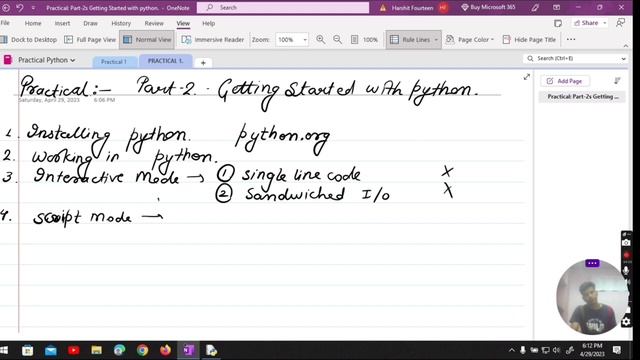 Practical: Part-2s Getting Started with python. - OneNote
Harshit Fourteen
Buy Microsoft 365
File Home Insert Draw History Review View Help
Share
Dock to Desktop Full Page View Normal View Immersive Reader Zoom: 100% 100% Rule Lines Page Color Hide Page Title
Practical Python Practical 1 PRACTICAL 1. +
Search (Ctrl+E)
Add Page
Practical: Part-2s Getting ...
Practical:- Part-2. Getting Started with python.
Saturday, April 29, 2023 6:06 PM
1. Installing python. python.org
2. Working in python.
3. Interactive Mode → ① single line code ×
② sandwiched I/o ×
4. script mode →
6:12 PM
4/29/2023